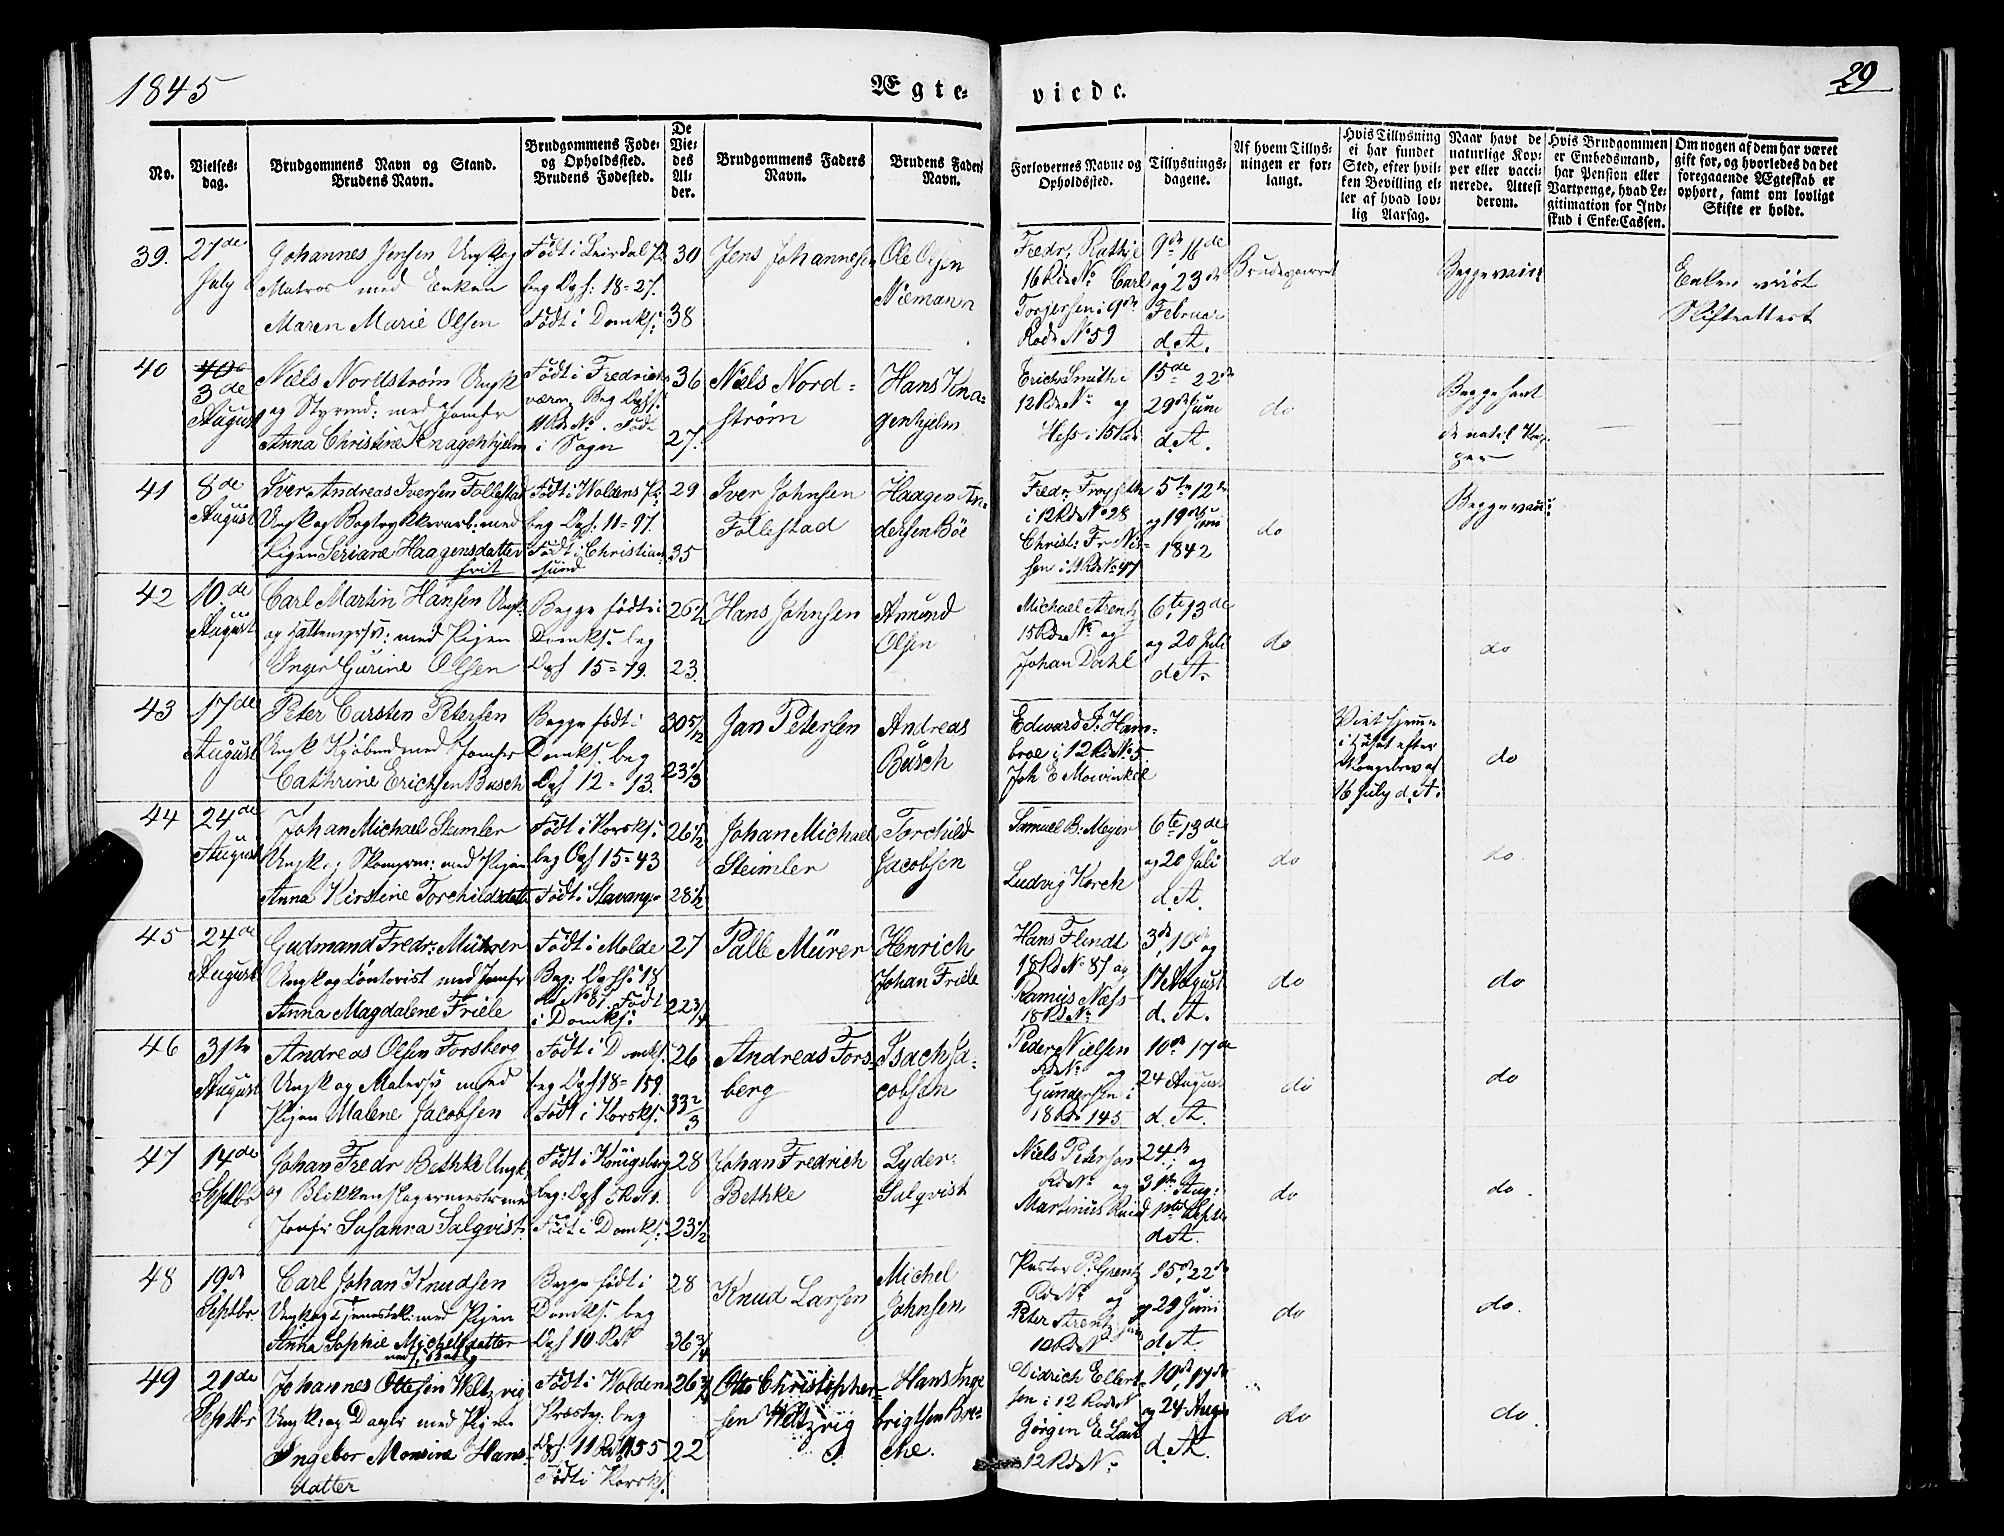 1845
Ægte-
viede.
29
No.
Vielses-
dag.
Brudgommens Navn og Stand.
Brudens Navn.
Brudgommens Føde-
og Opholdssted.
Brudens Fødested.
De
Vie-
des
Al-
der.
Brudgommens Faders
Navn.
Brudens Faders
Navn.
Forlovernes Navne og
Opholdssted.
Tillysnings-
dagene.
Af hvem Tillys-
ningen er for-
langt.
Hvis Tillysning
ei har fundet
Sted, efter hvil-
ken Bevilling el-
ler af hvad lov-
lig Aarsag.
Naar havt de
naturlige Kop-
per eller vacci-
nerede. Attest
derom.
Hvis Brudgommen
er Embedsmand,
har Pension eller
Vartpenge, hvad Le-
gitimation for Ind-
skud i Enke-Cassen.
Om nogen af dem har været
gift før, og hvorledes da det
foregaaende Ægteskab er
ophørt, samt om lovligt
Skifte er holdt.
39.
27de
July
Johannes Jensen Ungk og
Matros med Enken
Maren Marie Olsen
Født i Leirdal Pr
beg Dgf: 18-27.
Født i Domks:
30
38
Jens Johannesen
Ole Olsen
Niemann
Fredr. Rathje
16 Rde No Carl
Torgersen i 9de
Rode No 59
9de 16de
og 23de
Februar
d. A.
Begge vacc
Enken viist
Skifteattest
40
3de
August
Niels Nordstrøm Ungk
og Styrmd: med Jomfr
Anna Christine Knagenhjelm
Født i Fredrichs
værn, Beg Dgf:
11 Rd No . Født
i Sogn
36
27.
Niels Nord-
strøm
Hans Kna-
genhjelm
Erich Smith i
12 Rde No og
Hess i 15 Rd
15de 22de
29de Juni
d. A.
do
Begge havt
de naturl Kop-
per
41
8de
August
Iver Andreas Iversen Follestad
Ungk og Bogtrykkerarb: med
Pigen Seriane Haagensdatter
Født i Woldens Pr:
beg Dgf: 11-97.
Født i Christian-
sund
29
35
Iver Johnsen
Follestad
Haagen An-
dersen Bøe
i 12 Rd No 28
Christ: Fr Nil-
sen i 11 Rd No 47
5te 12te
og 19de Juni
1842
do
Begge vacc:
42
10de
August
Carl Martin Hansen Ungk.
og Hattemgrsv: med Pigen
Inger Gurine Olsen
Begge født i
Domks. beg
Dgf 15-79.
26 1/2
23.
Hans Johnsen
Amund
Olsen
Michael Arentz
15 Rde No og
Johan Dahl
6te 13de
og 20 Juli
d. A.
do
do
43
17de
August
Peter Carsten Petersen
Ungk Kjøbmd med Jomfr
Cathrine Erichsen Busch
Begge født i
Domks. beg
Dgf 12-13.
30 5/12
23 1/3
Jan Petersen
Andreas
Busch
Edward F. Ham-
broe i 12 Rd No 5
Joh E Mowinkel
Viet hjemme
i Huset efter
Kongebrev af
16 July d. A.
do
44
24de
August
Johan Michael Steimler
Ungk og Skomgrm: med Pigen
Anna Kirstine Torchildsdatt
Født i Korsks:
beg Dgf 15-43
Født i Stavanger
26 1/2
28 1/2
Johan Michael
Steimler
Torchild
Jacobsen
Samuel B. Meyer
Ludvig Korch
6te 13de
og 20 Juli
d. A.
do
do
45
24de
August
Gudmand Fredr: Mürer
Ungk og Contorist med Jomfr
Anna Magdalene Friele
Født i Molde
Beg: Dgf: 18
Rd No 87. Født
i Domks:
27
22 3/4
Palle Mürer
Henrich
Johan Friele
Hans Flindt
18 Rd No 87 og
Ramus Næss
18 Rd No
3de, 10de og
17 August
d. A.
do
do
46
31te
August
Andreas Olsen Forsberg
Ungk og Malersv med
Pigen Malene Jacobsen
Født i Domks.
beg Dgf 18-159.
Født i Korsks.
26
33 2/3
Andreas Fors-
berg
Isach Ja-
cobsen
Peder Nielsen
Rd No og
Gundersen i
18 Rd 145
10de 17de
24 August
d. A.
do
do
47
14de
Septbr
Johan Fredr Bethke Ungk
og Blikkenslagermester med
Jomfr Susanna Salqvist
Født i Kønigsberg
beg: Dgf 5 Rd 1.
Født i Domks:
28
23 1/2
Johan Fredrich
Bethke
Lyder
Salqvist
Niels Peterson
Rd No og
Martinus
24de og
31te Aug:
d. A.
do
do.
48
19de
Septbr.
Carl Johan Knudsen
Ungk og Tjenestek: med Pigen
Anna Sophie Michelsdatter
Begge født i
Domks. beg
Dgf 10 Rd
28
36 3/4
Knud Larsen
Michel
Johnsen
Rd No og
Peter Arentz
10 Rd No
15de 22de
og 29 Juni
d. A.
do
do.
49
21de
Septbr
Johannes Ottesen Weltzvig
Ungk og Dagk med Pigen
Ingebor Monsine Hans-
datter
Født i Wolden
Præstg. beg
Dgf. 11 Rd 155
Født i Korsks.
26 3/4
22
Otto Christopher-
sen Weltzvig
Hans Inge
brigtsen Bre-
che.
Didrich Ellert-
sen i 12 Rd No
12 Rd No
10de, 17de
og 24 Aug
d. A.
do
do.